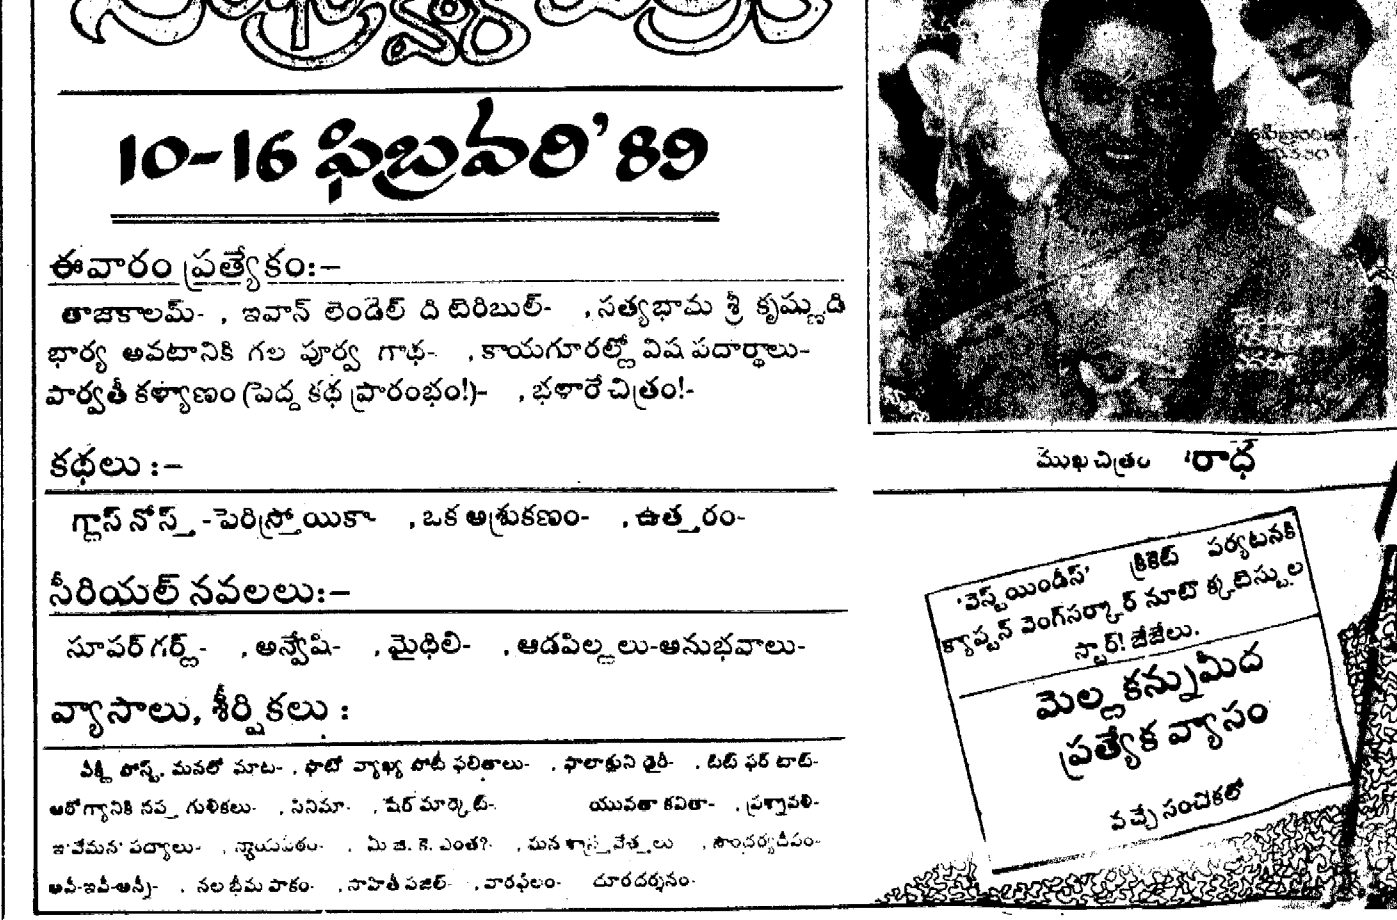 10-16 ఫిబ్రవరి '89
ఈవారం ప్రత్యేకం:-
తాజాకాలమ్- , ఇవాన్ లెండెల్ ది టెరిబుల్- , సత్యభామ శ్రీ కృష్ణుడి
భార్య అవటానికి గల పూర్వ గాథ- , కాయగూరల్లో విష పదార్థాలు-
పార్వతీ కళ్యాణం (పెద్ద కథ ప్రారంభం!)- , భళారే చిత్రం!-
కథలు :-
గ్లాస్ నోస్త్ -పెరిస్త్రోయికా- , ఒక అశ్రుకణం- , ఉత్తరం-
సీరియల్ నవలలు:-
సూపర్ గర్ల్- , అన్వేషి- , మైథిలి- , ఆడపిల్లలు-అనుభవాలు-
వ్యాసాలు, శీర్షికలు :
వీక్లీ పోస్ట్, మనలో మాట- , ఫొటో వ్యాఖ్య పోటీ ఫలితాలు- , ఫాలాక్షుని డైరీ- , టిట్ ఫర్ టాట్-
ఆరోగ్యానికి నవ్వు గుళికలు- , సినిమా- , షేర్ మార్కెట్- యువతా కవితా- , ప్రశ్నావళి-
ఇ'వేమన' పద్యాలు- , న్యాయపథం- , మీ జి. కె. ఎంత?- , మన శాస్త్రవేత్తలు , సౌందర్యదీపం-
అవీ-ఇవీ-అన్నీ- , నల భీమ పాకం- , సాహితీ పజిల్- , వారఫలం- దూరదర్శనం-
ముఖ చిత్రం 'రాధ
'వెస్ట్ యిండీస్' క్రికెట్ పర్యటనకి
క్యాప్టన్ వెంగ్‌సర్కార్ నూటొక్క టెస్టుల
స్టార్! జేజేలు.
మెల్ల కన్నుమీద
ప్రత్యేక వ్యాసం
వచ్చే సంచికలో